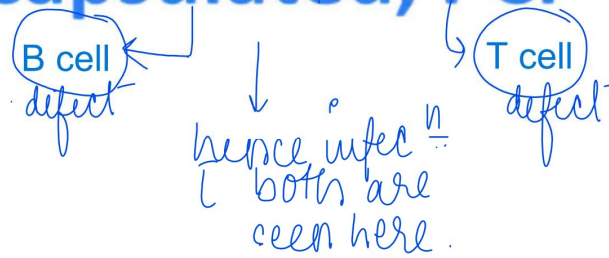 B cell
T cell
defect
defect
hence infecⁿ
c̄ both are
seen here.